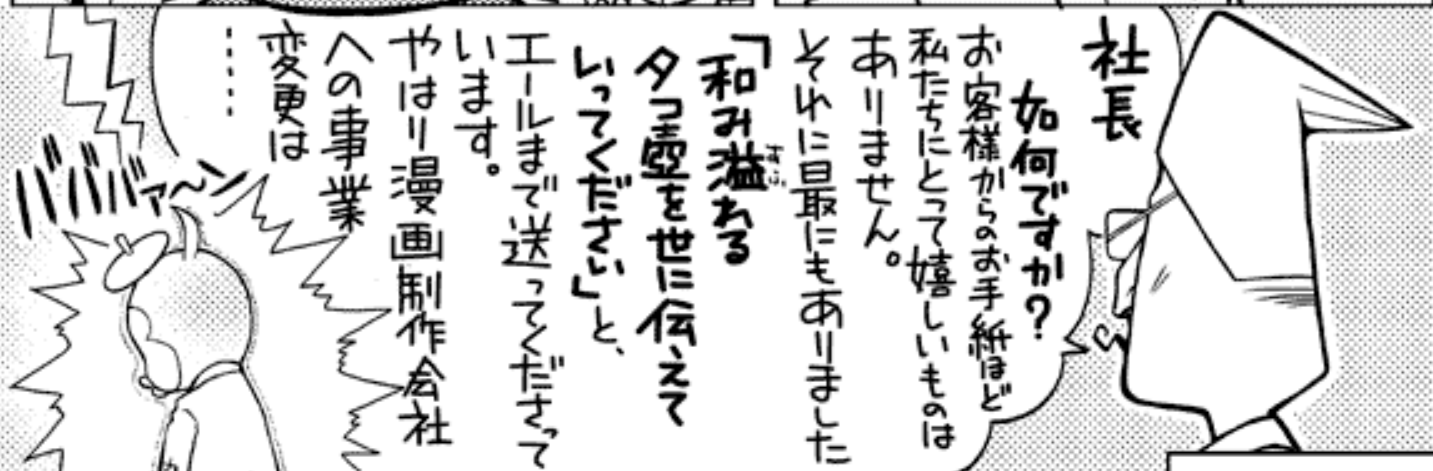 社長
如何ですか?
お客様からのお手紙ほど
私たちにとって嬉しいものは
ありません。
それに最にもありました
「和み溢れる
タコ壺を世に伝えて
いってください」と、
エールまで送ってくださって
います。
やはり漫画制作会社
への事業
変更は
……
バババァ〜ン